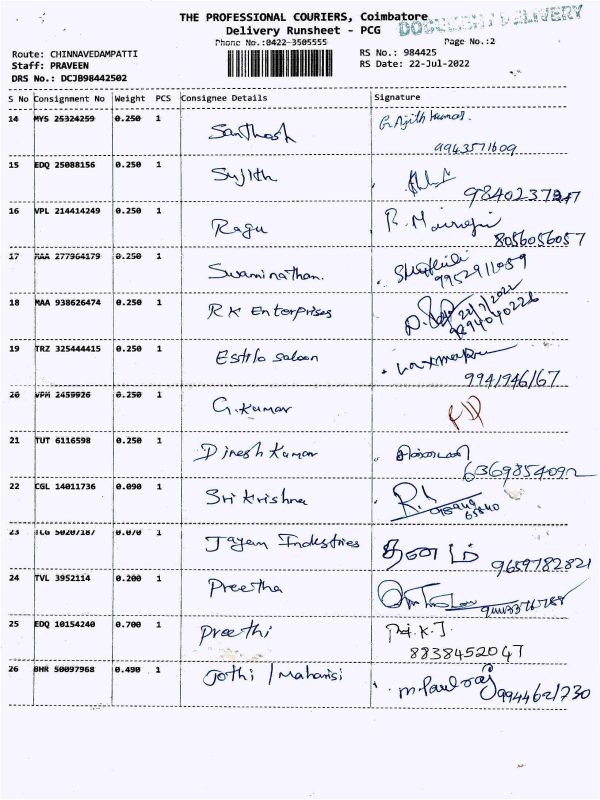 THE PROFESSIONAL COURIERS, Coimbatore
DOCUMENT DELIVERY
Delivery Runsheet - PCG
Phone No.:0422-3505555
Page No.:2
Route: CHINNAVEDAMPATTI
RS No.: 984425
Staff: PRAVEEN
RS Date: 22-Jul-2022
DRS No.: DCJB98442502
S No Consignment No Weight PCS Consignee Details Signature
14 MYS 25324259 0.250 1 Santhosh G. Ajith kumar.
9943571609
15 EDQ 25088156 0.250 1 Sujith
16 VPL 214414249 0.250 1 Ragu
8056056057
17 MAA 277964179 0.250 1 Swaminathan.
9952911059
18 MAA 938626474 0.250 1 RK Enterprises
22/7/2022
9894040226
19 TRZ 325444415 0.250 1 Estilo saloon
9941946167
20 VPM 2459926 0.250 1 G.Kumar
21 TUT 6116598 0.250 1 Dinesh Kumar
6369854092
22 CGL 14011736 0.090 1 Sri Krishna
23 TCG 50207187 0.070 1 Jayam Industries தனம்
9659782821
24 TVL 3952114 0.200 1 Preetha
25 EDQ 10154240 0.700 1 Preethi
8838452047
26 BHR 50097968 0.490 1 Jothi / Maharisi m. Paulraj
9944621730